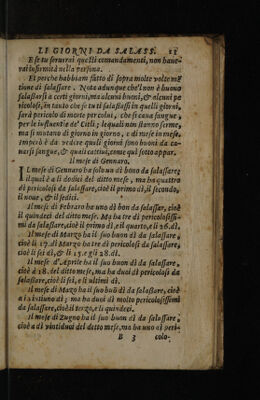 LI GIORNI DA SALASS. 11
E se tu seruerai quelli comandamenti, non haue-
rai infirmità nella persona.
Et perche habbiam fatto di sopra molte volte mē
tione di salassare. Nota adunque che'l non è buono
salassarsi a certi giorni, ma alcuni buoni, & alcuni pe
ricolosi, in tanto che se tu ti salassassi in quelli giorni,
sarà pericolo di morte per colui, che si caua sangue,
per le influentie de' Cieli; lequali non stanno ferme,
ma si mutano di giorno in giorno, e di mese in mese.
Imperò è da vedere quali giorni sono buoni da co-
uarsi sangue, & quali cattiui, come qui sotto appar.
Il mese di Gennaro.
IL mese di Gennaro ha solo un dì bono da salassare;
il qual è a li dodici del ditto mese, ma ha quattro
dì pericolosi da salassare, cioè il primo dì, il secondo,
il noue, & il sedici.
Il mese di Febraro ha uno dì bon da salassar, cioè
il quindeci del ditto mese. Ma ha tre dì pericolosissi-
mi da salassare, cioè il primo dì, e il quarto, e il 26. dì.
Il mese di Marzo ha il suo buon dì da salassare,
cioè li 17. di Marzo ha tre dì pericolosi da salassare,
cioè il sei dì, & li 15. e gli 28. dì.
Il mese d'Aprile ha il suo buon dì da salassare,
cioè à 18. del ditto mese, ma ha duoi dì pericolosi da
salassare, cioè li sei, e li ultimi dì.
Il mese di Mazo ha il suo buō dì da salassare, cioè
a i vintiuno dì; ma ha duoi dì molto pericolosissimi
da salassare, cioè il terzo, e li quindeci.
Il mese di Zugno ha il suo buon dì da salassare,
cioè a dì vintiduoi del detto mese, ma ha uno dì peri-
B 3 colo-